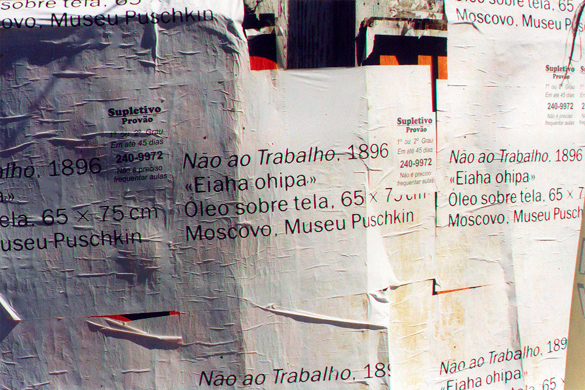 sobre tela. 65
ovo, Museu Puschkin
Óleo sobre tela. 65
Moscovo, Museu Pus
Supletivo
Provão
1º ou 2º Grau
Em até 45 dias
240-9972
Não é preciso
frequentar aulas
alho. 1896
»
ela. 65 × 75 cm
useu Puschkin
Não ao Trabalho. 1896
«Eiaha ohipa»
Óleo sobre tela. 65 × 75 cm
Moscovo, Museu Puschkin
Supletivo
Provão
1º ou 2º Grau
Em até 45 dias
240-9972
Não é preciso
frequentar aulas
Supletivo
Provão
240-9972
Não é preciso
frequentar aulas
Não ao Trabalho. 1896
«Eiaha ohipa»
Óleo sobre tela. 65 × 7
Moscovo, Museu Pusch
Não ao Trabalho. 189
Não ao Trabalho. 18
«Eiaha ohipa»